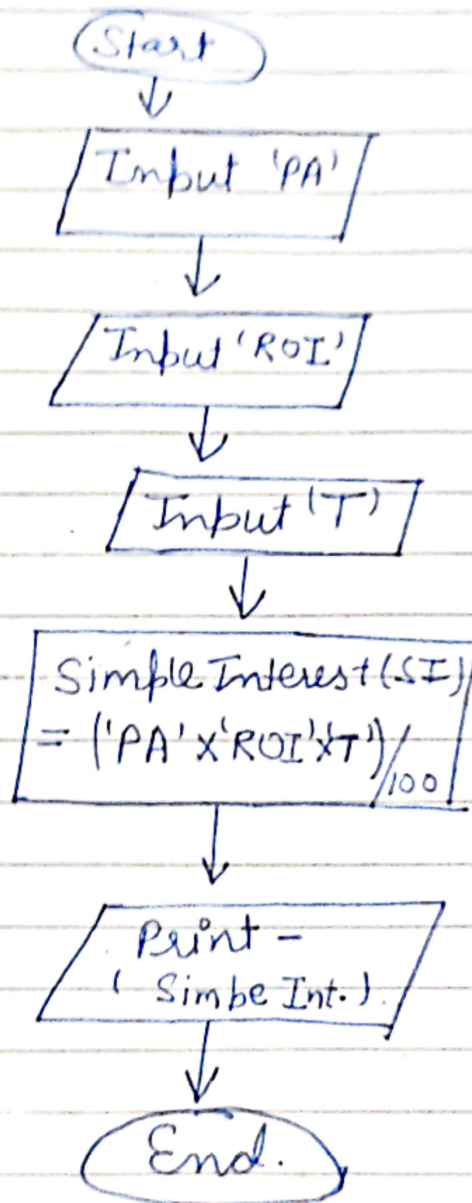 Start
Input 'PA'
Input 'ROI'
Input 'T'
Simple Interest (SI)
= ('PA' x 'ROI' x 'T')/100
Print -
( Simbe Int.)
End.